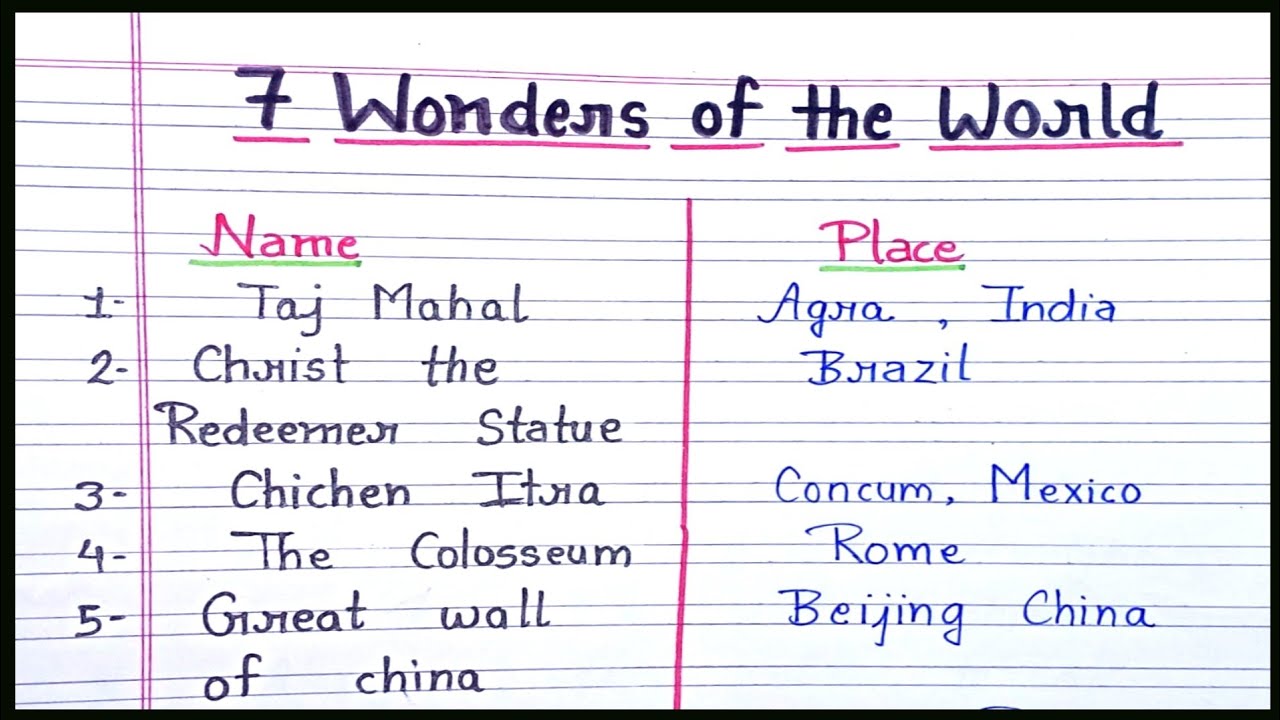 7 Wonders of the World
Name Place
1- Taj Mahal Agra , India
2- Christ the Brazil
Redeemer Statue
3- Chichen Itra Concum, Mexico
4- The Colosseum Rome
5- Great wall Beijing China
of china